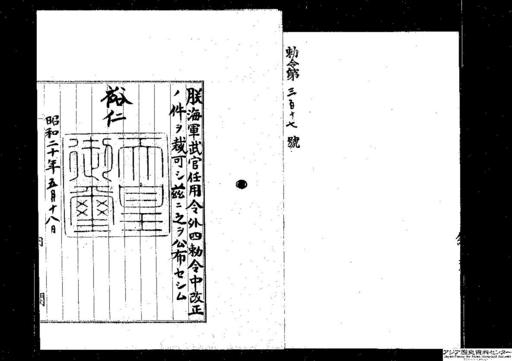 勅令第三百十七號
朕海軍武官任用令外四勅令中改正
ノ件ヲ裁可シ茲ニ之ヲ公布セシム
裕仁
天皇御璽
昭和二十年五月十八日
アジア歴史資料センター